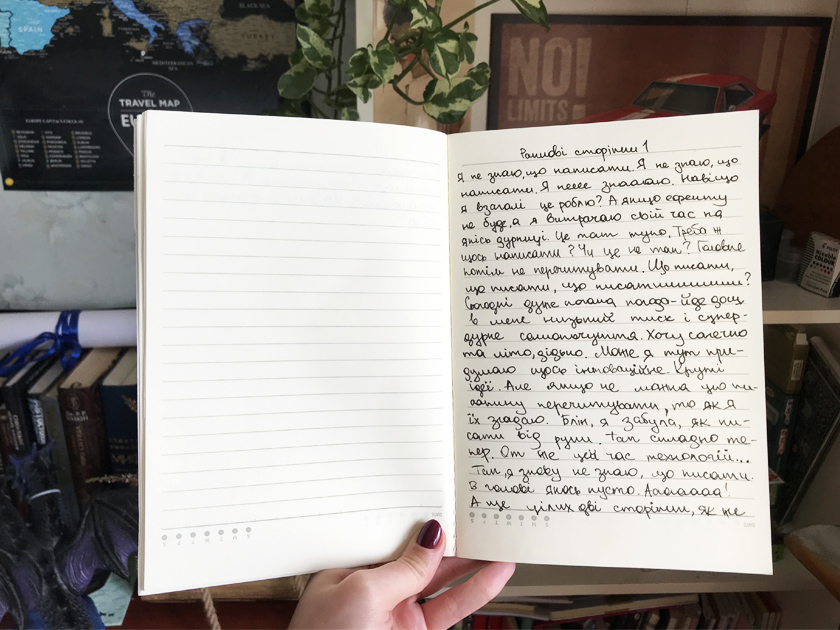 SPAIN
BLACK SEA
TURKEY
MEDITERRANEAN SEA
The
TRAVEL MAP
NO!
LIMITS!
Ранкові сторінки 1
Я не знаю, що написати. Я не знаю, що
написати. Я нееее знааааю. Навіщо
я взагалі це роблю? А якщо ефекту
не буде, а я витрачаю свій час на
якісь дурниці. Це так тупо. Треба ж
щось написати? Чи це не так? Головне
потім не перечитувати. Що писати,
що писати, що писатиииииии?
Сьогодні дуже погана погода - йде дощ
в мене низький тиск і супер-
дурне самопочуття. Хочу сонечно
та літо, дідько. Може я тут при-
думаю щось інноваційне. Круті
ідеї. Але якщо не можна цю пи-
санину перечитувати, то як я
їх згадаю. Блін, я забула, як пи-
сати від руки. Так складно те-
пер. От те цей час технологій...
Так, я знову не знаю, що писати.
В голові якось пусто. Аааааааа!
А ще цілих дві сторінки, як же